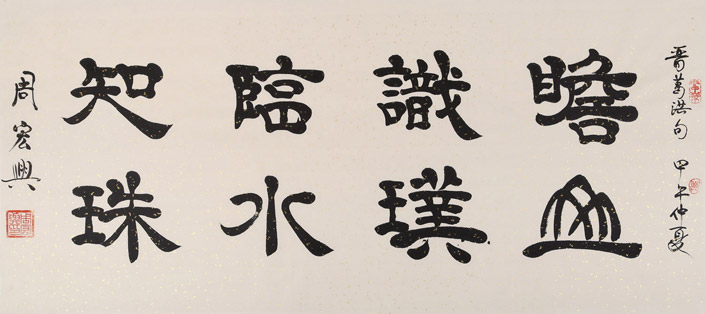 晋葛洪句 甲午仲夏
瞻山
識璞
臨水
知珠
周宏興